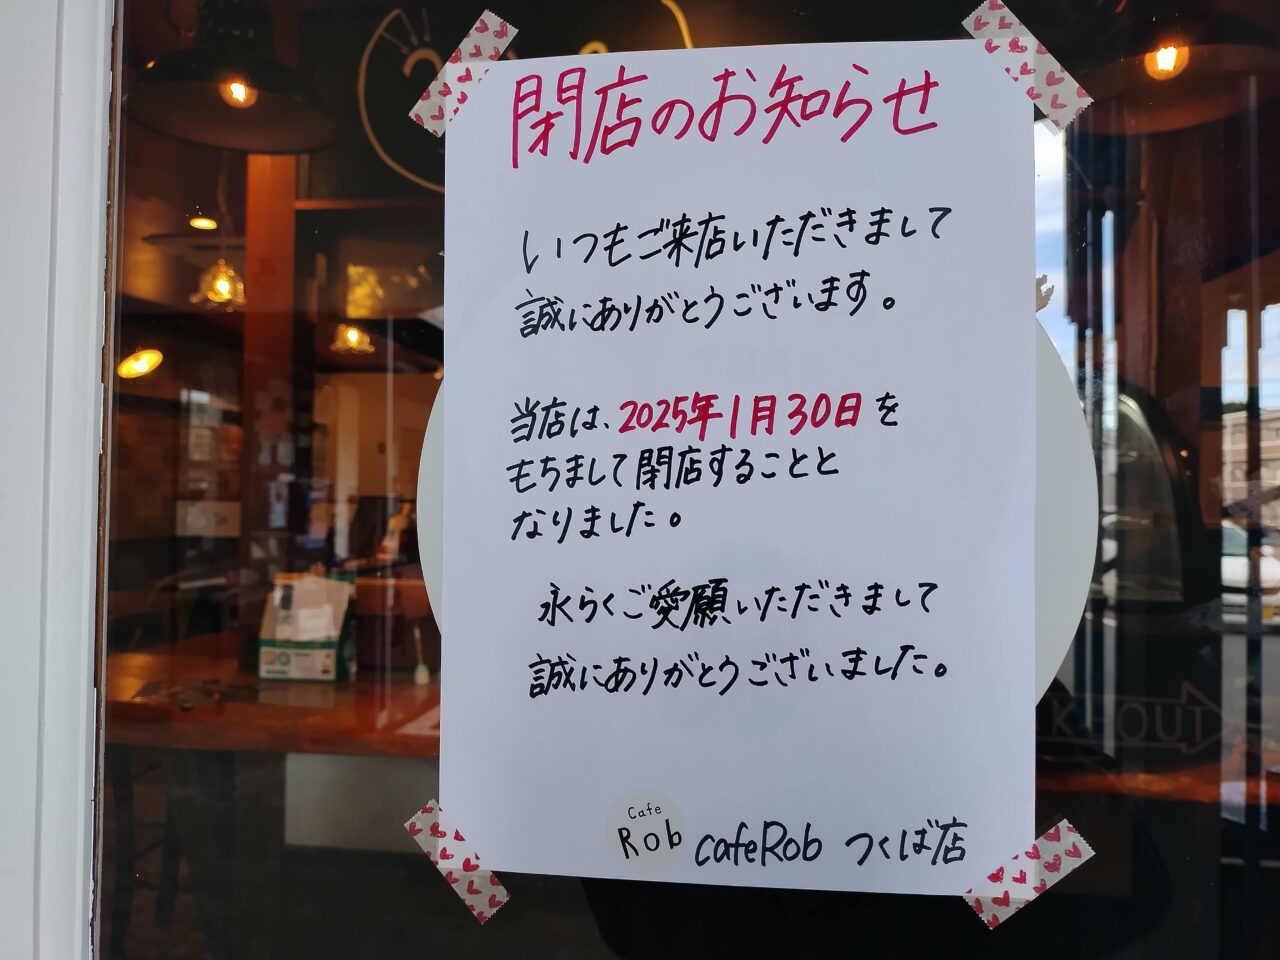 閉店のお知らせ
いつもご来店いただきまして
誠にありがとうございます。
当店は、2025年1月30日を
もちまして閉店することと
なりました。
永らくご愛願いただきまして
誠にありがとうございました。
Cafe
Rob
cafeRob つくば店
OUT